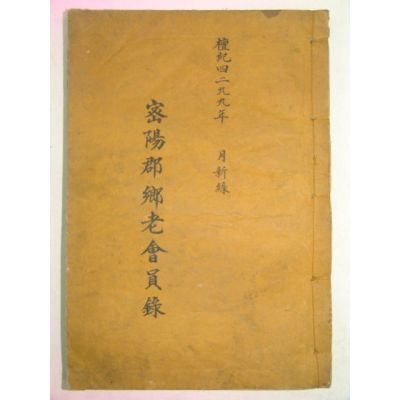 檀紀四二九九年 月新錄
密陽郡鄕老會員錄